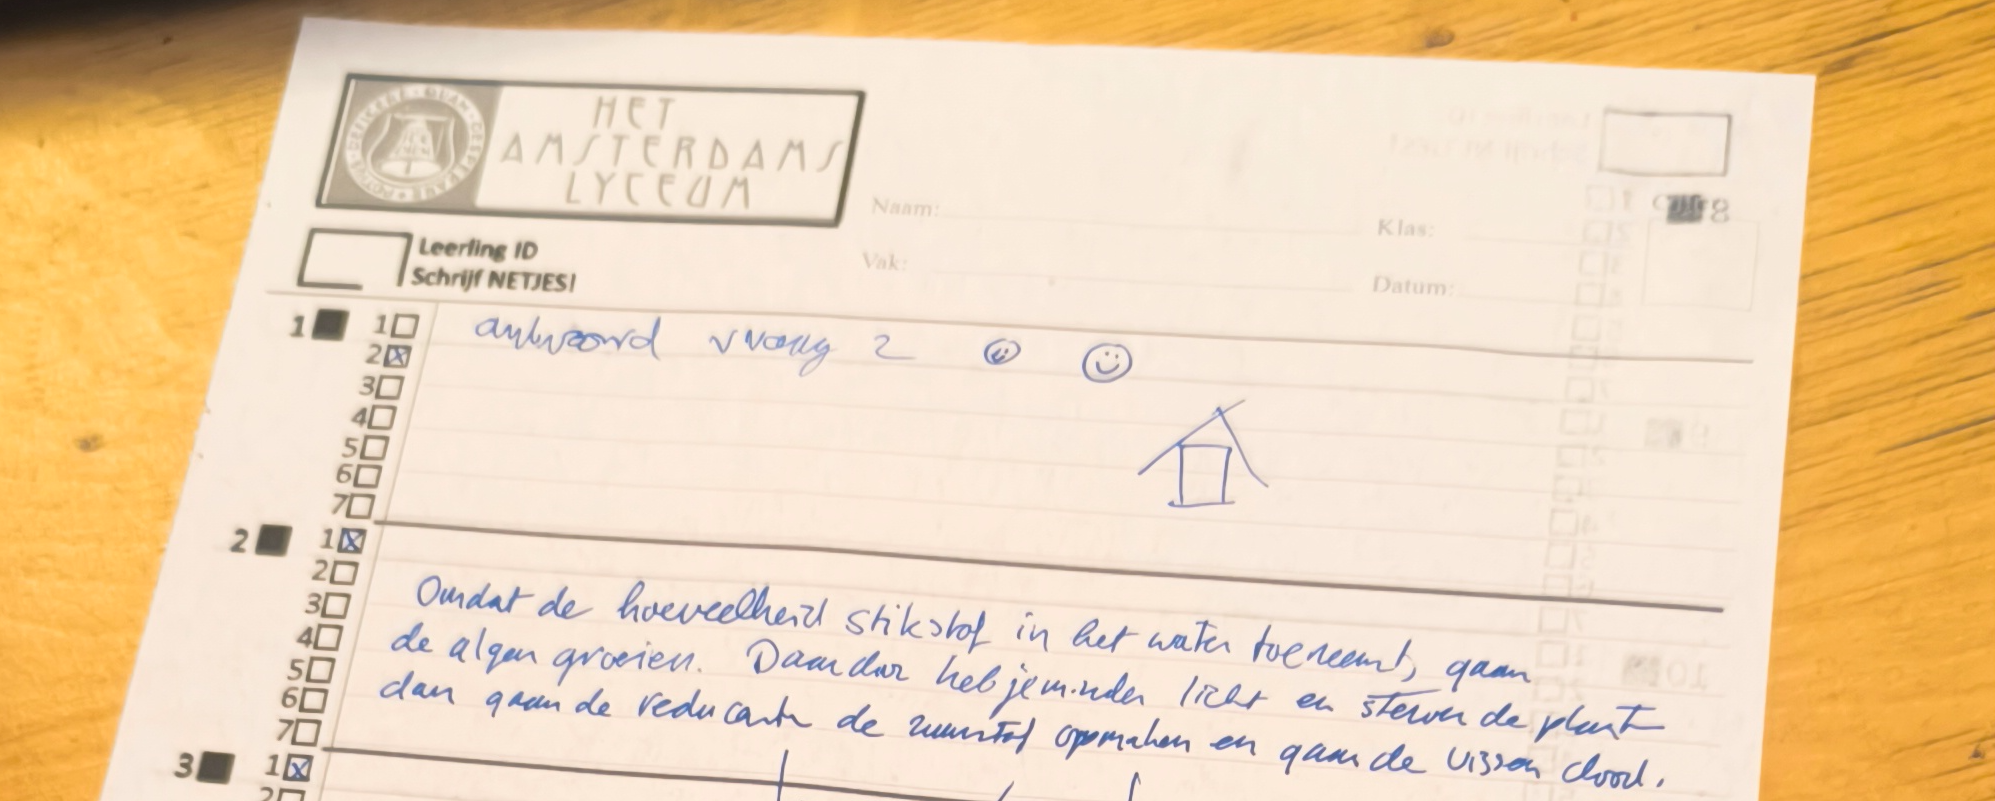 HET
AMSTERDAMS
LYCEUM
Naam:
Klas:
Cijfer
Vak:
Datum:
Leerling ID
Schrijf NETJES!
1 1
2
3
4
5
6
7
antwoord vraag 2
2 1
2
3
4
5
6
7
Omdat de hoeveelheid stikstof in het water toeneemt, gaan
de algen groeien. Daardoor heb je minder licht en sterven de plant
dan gaan de reducenten de zuurstof opmaken en gaan de vissen dood.
3 1
2